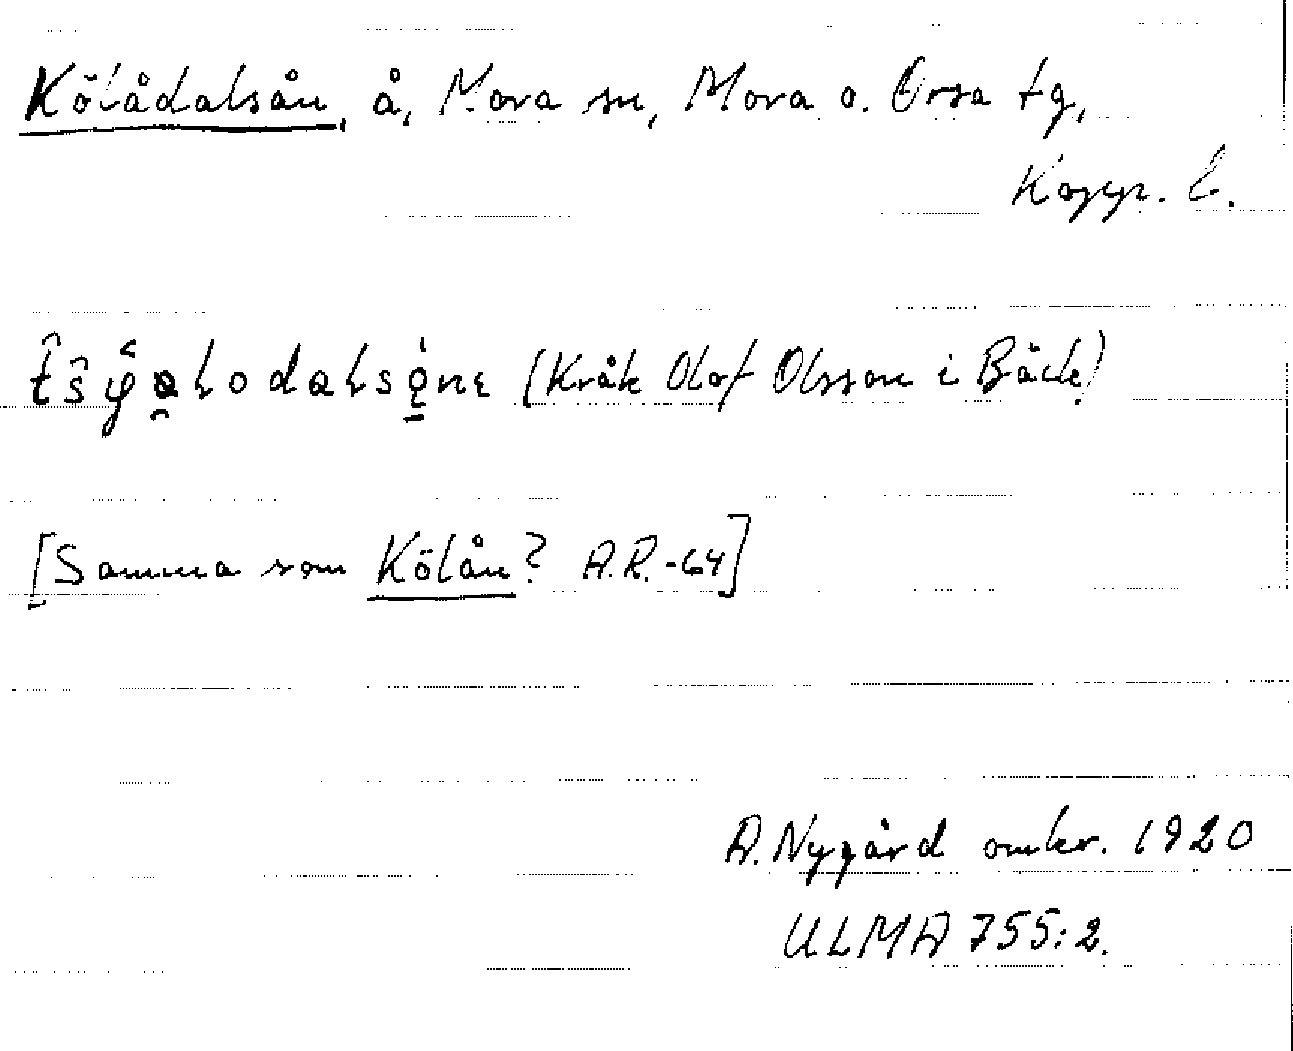 Kölådalsån, å, Mora sn, Mora o. Orsa tg,
Kopp. l.
(Kråk Olof Olsson i Bäck)
[Samma som Kölån? A.R.-64]
A. Nygård omkr. 1920
ULMA 755:2.